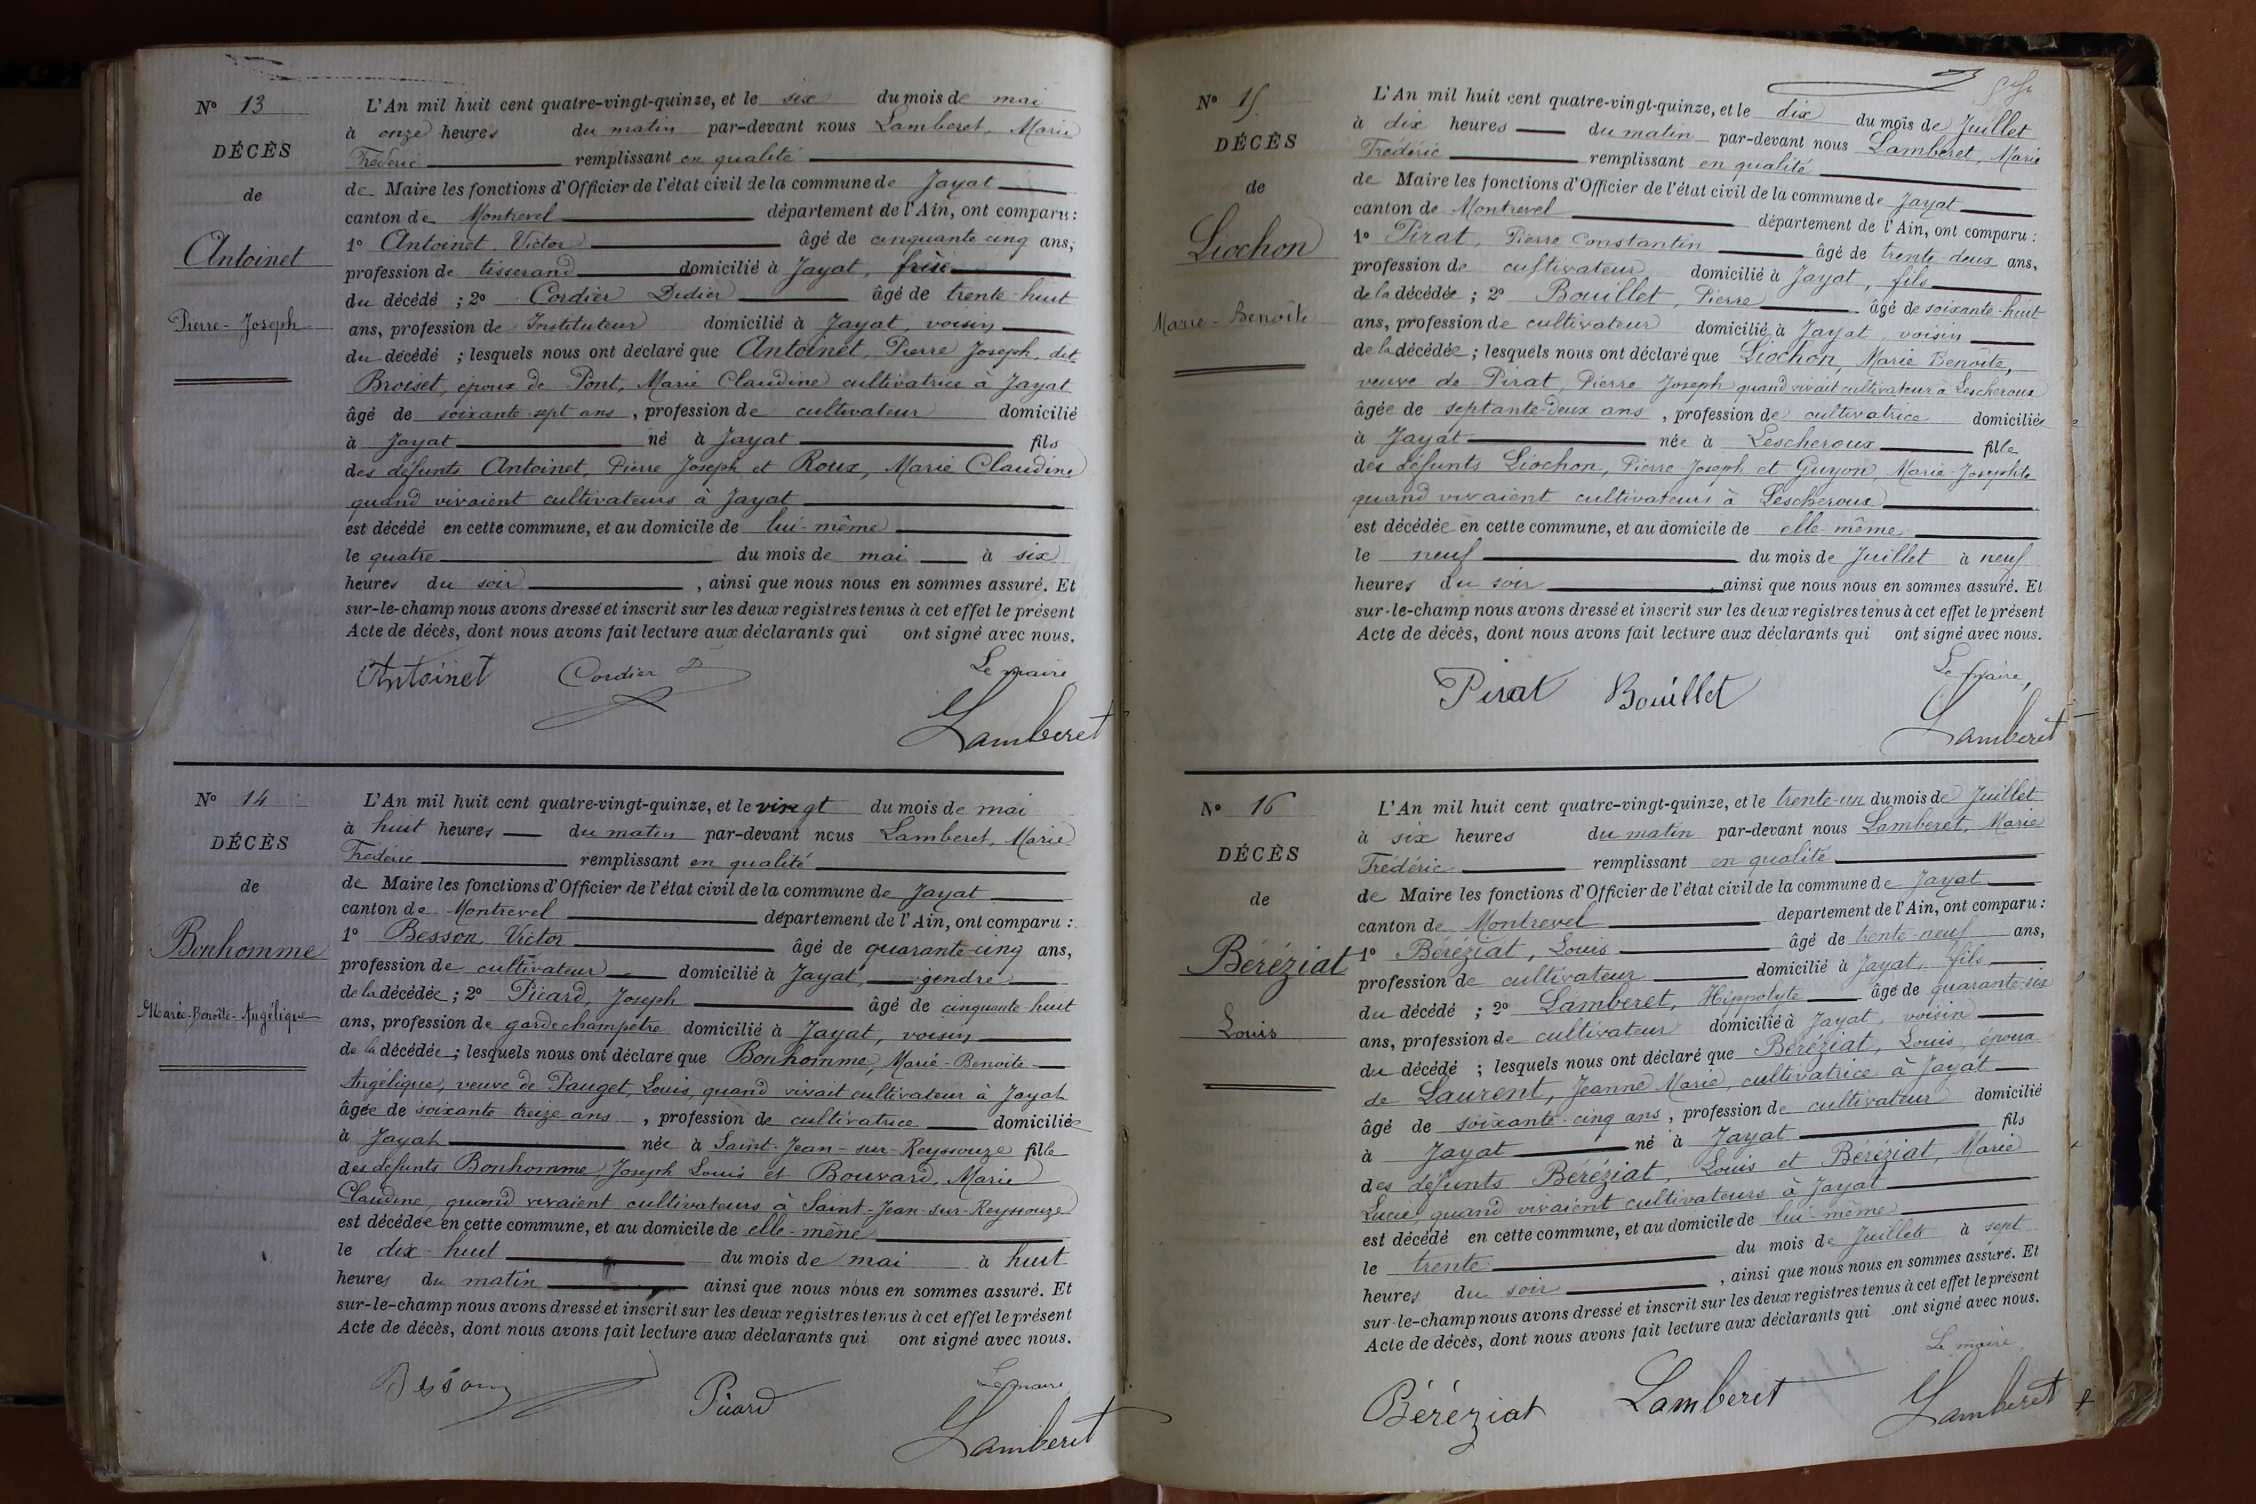 N° 13
DÉCÈS
de
Antoinet
Pierre-Joseph
L'An mil huit cent quatre-vingt-quinze, et le six du mois de mai
à onze heures du matin par-devant nous Lamberet, Marie
Frédéric remplissant en qualité
de Maire les fonctions d'Officier de l'état civil de la commune de Jayat
canton de Montrevel département de l'Ain, ont comparu :
1° Antoinet Victor âgé de cinquante cinq ans,
profession de tisserand domicilié à Jayat, frère
du décédé ; 2° Cordier Didier âgé de trente-huit
ans, profession de Instituteur domicilié à Jayat, voisin
du décédé ; lesquels nous ont déclaré que Antoinet, Pierre Joseph, dit
Broiset, époux de Pont, Marie Claudine cultivatrice à Jayat
âgé de soixante-sept ans, profession de cultivateur domicilié
à Jayat né à Jayat fils
des défunts Antoinet, Pierre Joseph et Roux, Marie Claudine
quand vivaient cultivateurs à Jayat
est décédé en cette commune, et au domicile de lui-même
le quatre du mois de mai à six
heures du soir, ainsi que nous nous en sommes assuré. Et
sur-le-champ nous avons dressé et inscrit sur les deux registres tenus à cet effet le présent
Acte de décès, dont nous avons fait lecture aux déclarants qui ont signé avec nous.
Le maire
Antoinet Cordier D
Lamberet
N° 14
DÉCÈS
de
Bonhomme
Marie-Benoîte-Angélique
L'An mil huit cent quatre-vingt-quinze, et le vingt du mois de mai
à huit heures du matin par-devant nous Lamberet, Marie
Frédéric remplissant en qualité
de Maire les fonctions d'Officier de l'état civil de la commune de Jayat
canton de Montrevel département de l'Ain, ont comparu :
1° Besson Victor âgé de quarante-cinq ans,
profession de cultivateur domicilié à Jayat, gendre
de la décédée ; 2° Picard, Joseph âgé de cinquante-huit
ans, profession de garde champêtre domicilié à Jayat, voisin
de la décédée ; lesquels nous ont déclaré que Bonhomme, Marie-Benoite-
Angélique, veuve de Pauget, Louis, quand vivait cultivateur à Jayat
âgée de soixante treize ans, profession de cultivatrice domiciliée
à Jayat née à Saint-Jean-sur-Reyssouze fille
des défunts Bonhomme Joseph Louis et Bouvard, Marie
Claudine, quand vivaient cultivateurs à Saint-Jean-sur-Reyssouze
est décédée en cette commune, et au domicile de elle-même
le dix-huit du mois de mai à huit
heures du matin ainsi que nous nous en sommes assuré. Et
sur-le-champ nous avons dressé et inscrit sur les deux registres tenus à cet effet le présent
Acte de décès, dont nous avons fait lecture aux déclarants qui ont signé avec nous.
Le maire
Besson Picard
Lamberet
N° 15
DÉCÈS
de
Liochon
Marie-Benoîte
L'An mil huit cent quatre-vingt-quinze, et le dix du mois de Juillet
à dix heures du matin par-devant nous Lamberet, Marie
Frédéric remplissant en qualité
de Maire les fonctions d'Officier de l'état civil de la commune de Jayat
canton de Montrevel département de l'Ain, ont comparu :
1° Pirat, Pierre Constantin âgé de trente-deux ans,
profession de cultivateur domicilié à Jayat, fils
de la décédée ; 2° Bouillet, Pierre âgé de soixante-huit
ans, profession de cultivateur domicilié à Jayat, voisin
de la décédée ; lesquels nous ont déclaré que Liochon, Marie Benoîte,
veuve de Pirat, Pierre Joseph quand vivait cultivateur à Lescheroux
âgée de septante-deux ans, profession de cultivatrice domiciliée
à Jayat née à Lescheroux fille
des défunts Liochon, Pierre-Joseph et Guyon, Marie-Josephte
quand vivaient cultivateurs à Lescheroux
est décédée en cette commune, et au domicile de elle-même
le neuf du mois de Juillet à neuf
heures du soir, ainsi que nous nous en sommes assuré. Et
sur-le-champ nous avons dressé et inscrit sur les deux registres tenus à cet effet le présent
Acte de décès, dont nous avons fait lecture aux déclarants qui ont signé avec nous.
Le maire,
Pirat Bouillet
Lamberet
N° 16
DÉCÈS
de
Béréziat
Louis
L'An mil huit cent quatre-vingt-quinze, et le trente-un du mois de Juillet
à six heures du matin par-devant nous Lamberet, Marie
Frédéric remplissant en qualité
de Maire les fonctions d'Officier de l'état civil de la commune de Jayat
canton de Montrevel departement de l'Ain, ont comparu :
1° Béréziat, Louis âgé de trente-neuf ans,
profession de cultivateur domicilié à Jayat, fils
du décédé ; 2° Lamberet, Hippolyte âgé de quarante-six
ans, profession de cultivateur domicilié à Jayat, voisin
du décédé ; lesquels nous ont déclaré que Béréziat, Louis, époux
de Laurent, Jeanne Marie, cultivatrice à Jayat
âgé de soixante-cinq ans, profession de cultivateur domicilié
à Jayat né à Jayat fils
des défunts Béréziat, Louis et Béréziat, Marie
Lucie, quand vivaient cultivateurs à Jayat
est décédé en cette commune, et au domicile de lui-même
le trente du mois de Juillet à sept
heures du soir, ainsi que nous nous en sommes assuré. Et
sur-le-champ nous avons dressé et inscrit sur les deux registres tenus à cet effet le présent
Acte de décès, dont nous avons fait lecture aux déclarants qui ont signé avec nous.
Le maire,
Béréziat Lamberet Lamberet